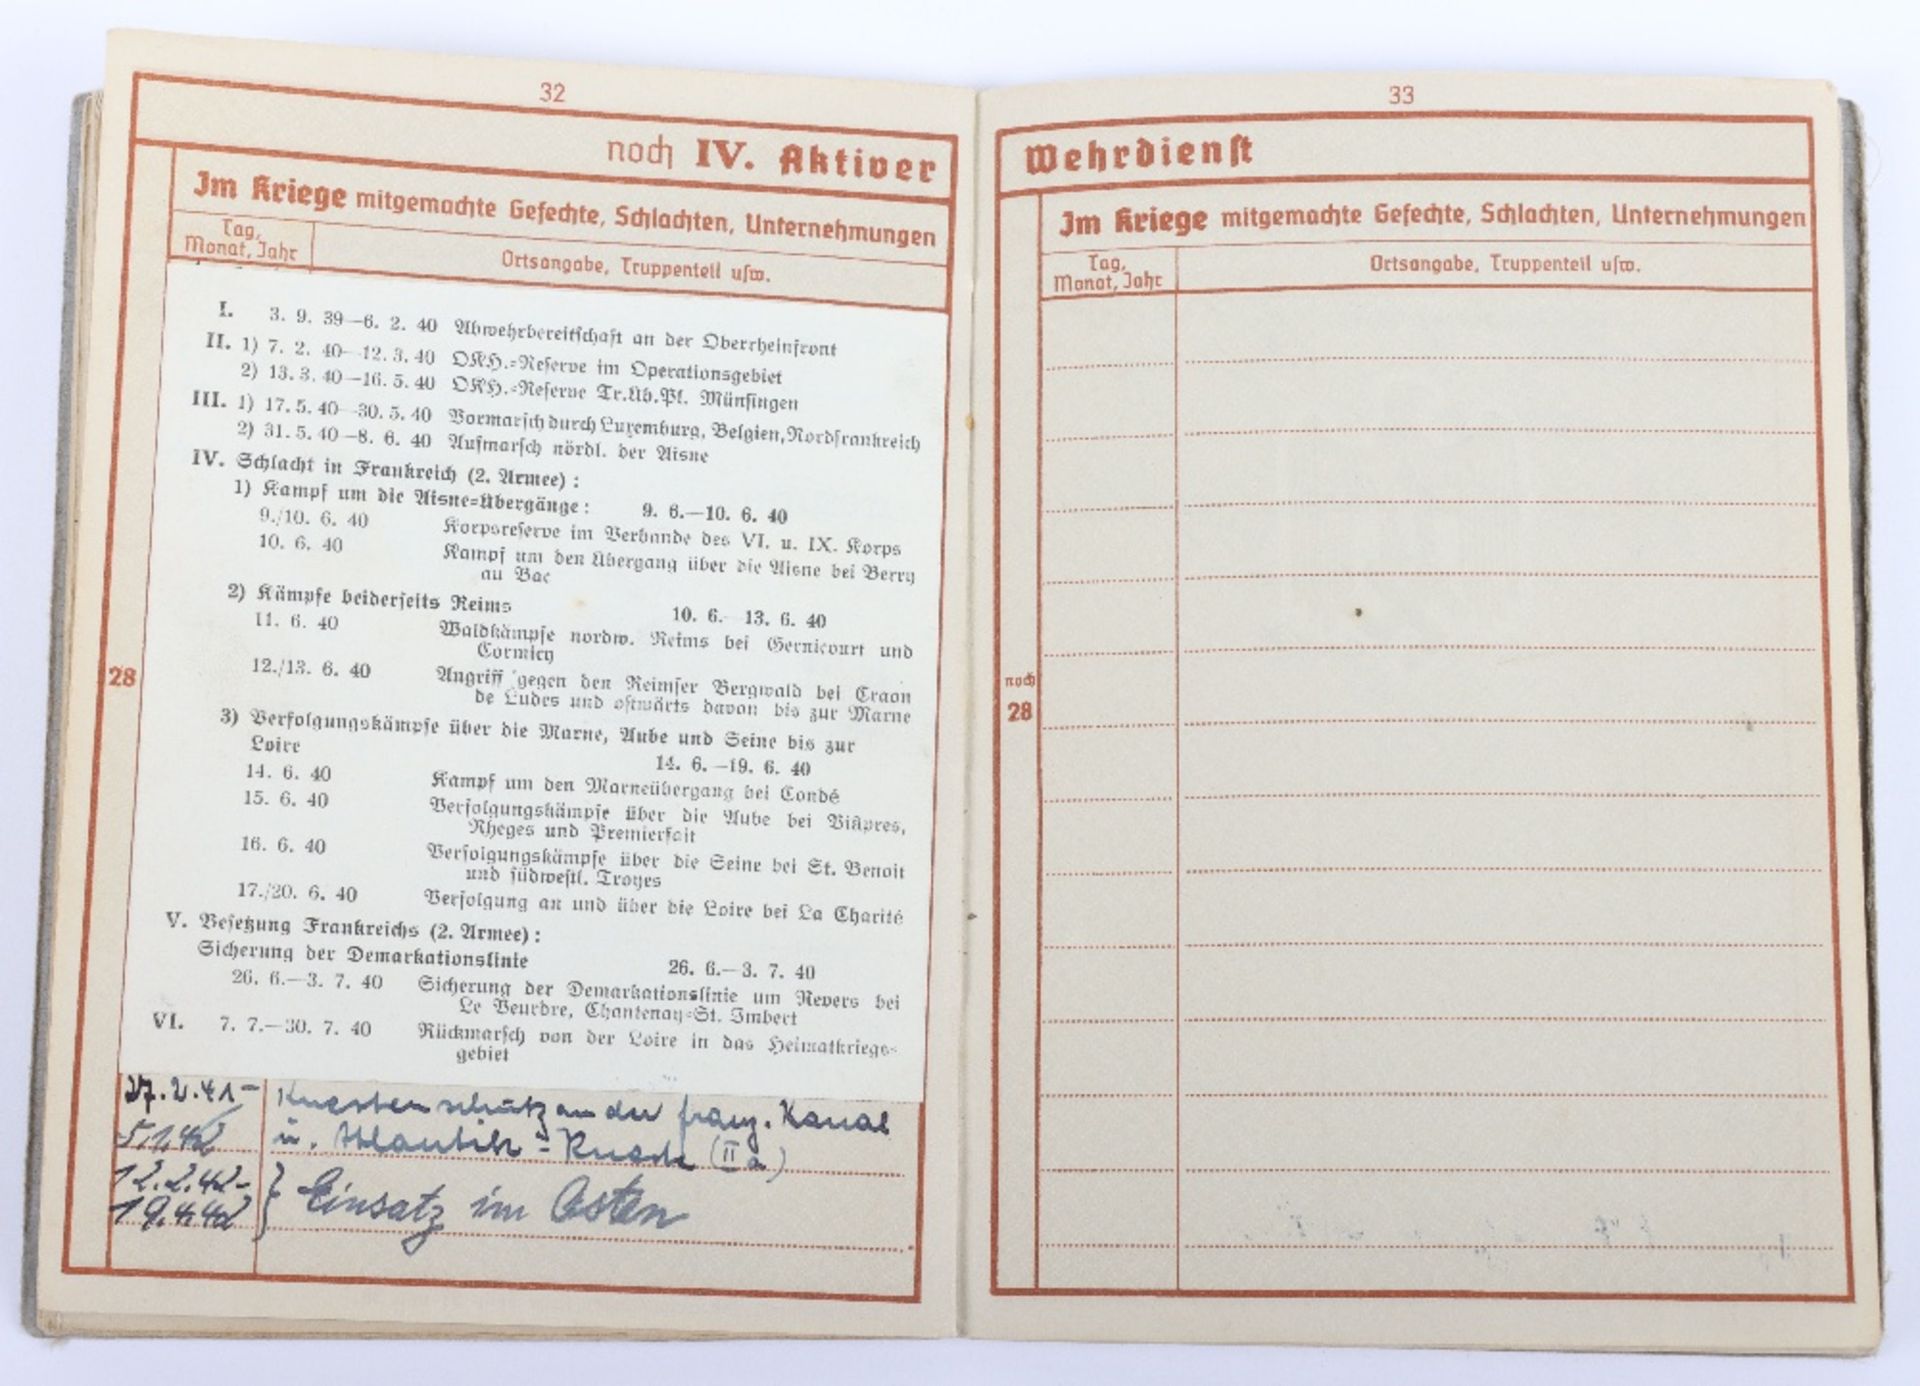 32
noch IV. Aktiver
Im Kriege mitgemachte Gefechte, Schlachten, Unternehmungen
Tag, Monat, Jahr
Ortsangabe, Truppenteil usw.
I. 3. 9. 39—6. 2. 40 Abwehrbereitschaft an der Oberrheinfront
II. 1) 7. 2. 40—12. 3. 40 OKH.=Reserve im Operationsgebiet
2) 13. 3. 40—16. 5. 40 OKH.=Reserve Tr.Üb.Pl. Münsingen
III. 1) 17. 5. 40—30. 5. 40 Vormarsch durch Luxemburg, Belgien, Nordfrankreich
2) 31. 5. 40—8. 6. 40 Aufmarsch nördl. der Aisne
IV. Schlacht in Frankreich (2. Armee):
1) Kampf um die Aisne=Übergänge: 9. 6.—10. 6. 40
9./10. 6. 40 Korpsreserve im Verbande des VI. u. IX. Korps
10. 6. 40 Kampf um den Übergang über die Aisne bei Berry
au Bac
2) Kämpfe beiderseits Reims 10. 6.—13. 6. 40
11. 6. 40 Waldkämpfe nordw. Reims bei Gernicourt und
Cormicy
12./13. 6. 40 Angriff gegen den Reimser Bergwald bei Craon
de Ludes und ostwärts davon bis zur Marne
3) Verfolgungskämpfe über die Marne, Aube und Seine bis zur
Loire 14. 6.—19. 6. 40
14. 6. 40 Kampf um den Marneübergang bei Condé
15. 6. 40 Verfolgungskämpfe über die Aube bei Viâpres,
Rheges und Premierfait
16. 6. 40 Verfolgungskämpfe über die Seine bei St. Benoit
und südwestl. Troyes
17./20. 6. 40 Verfolgung an und über die Loire bei La Charité
V. Besetzung Frankreichs (2. Armee):
Sicherung der Demarkationslinie 26. 6.—3. 7. 40
26. 6.—3. 7. 40 Sicherung der Demarkationslinie um Nevers bei
Le Veurdre, Chantenay=St. Imbert
VI. 7. 7.—30. 7. 40 Rückmarsch von der Loire in das Heimatkriegs=
gebiet
28
27.2.41- Kuestenschutz an der franz. Kanal
5.1.42 u. Atlantik=Kueste (II a)
12.2.42-
19.4.42 } Einsatz im Osten
33
Wehrdienst
Im Kriege mitgemachte Gefechte, Schlachten, Unternehmungen
Tag, Monat, Jahr
Ortsangabe, Truppenteil usw.
noch
28